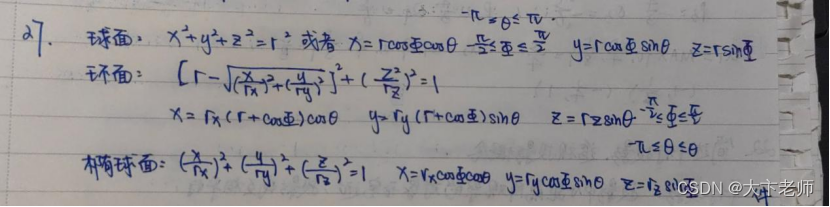 -π≤θ≤π.
27. 球面: x²+y²+z²=r² 或者 x=rcosΦcosθ -π/2≤Φ≤π/2 y=rcosΦsinθ z=rsinΦ
环面: [r-√((x/rx)²+(y/ry)²)]²+(z²/rz)²=1
x=rx(r+cosΦ)cosθ y=ry(r+cosΦ)sinθ z=rzsinθ -π/2≤Φ≤π/2
-π≤θ≤θ
椭球面: (x/rx)²+(y/ry)²+(z/rz)²=1 x=rxcosΦcosθ y=rycosΦsinθ z=rzsinΦ
CSDN @大卞老师